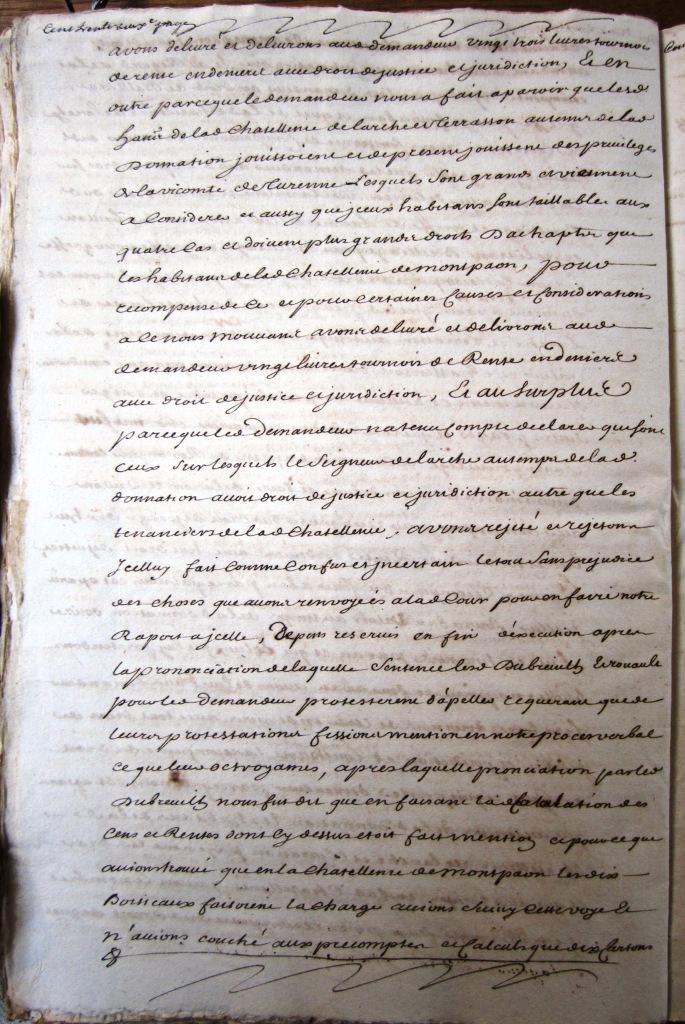 Cent trente deuxe page
avons delivré et delivrons aud demandeur vingt trois livres tournois
de rente en denier avec droit de justice et juridiction, Et en
outre parceque le demandeur nous a fait aparoir que les d
haâns de lad Chatellenie de larche et Terrasson au temps de lad
Donnation jouissoient et de present jouissent des privileges
de la vicomté de Turenne Lesquels sont grands et viennent
a Considerer et aussy que jceux habitans sont taillables aux
quatre Cas et doivent plus grands droits Dachapter que
les habitans de lad Chatellenie de montpaon, pour
recompense de Ce et pour Certaines Causes et Considerations
a Ce nous mouvans avons delivré et delivrons aud
demandeur vingt livres tournois de Rente en deniers
avec droit de justice et juridiction, Et au Surplus
parceque led Demandeur na tenu Compte declarer qui sont
Ceux Sur lesquels le Seigneur de larche au temps de lad
donnation avoit droit de justice et juridiction autre que les
tenanciers de lad Chatellenie, avons rejeté et rejetons
Jcelluy fait Comme Confus et jncertain le tout Sans prejudice
des choses que avons renvoyées a lad Cour pour en faire notre
Raport a jcelle, Depans reservés en fin dexecution apres
la prononciation de laquelle Sentence lesd Dubreuilh Et rouault
pour led demandeur protesterent d'apeller requerant que de
leurs protestations fissions mention en notre proces verbal
ce que leur octroyames, apres laquelle pronciation par led
Dubreuilh nous fut dit que en faisant lad Calculation des
Cens et Rentes dont Cy dessus etoit fait mention et pour ce que
avions trouvé que en la Chatellenie de montpaon les dix
Boisseaux faisoient la Charge avions Suivy Cette voye Et
n'avions couché aux precomptes et Calculs que dix Cartons